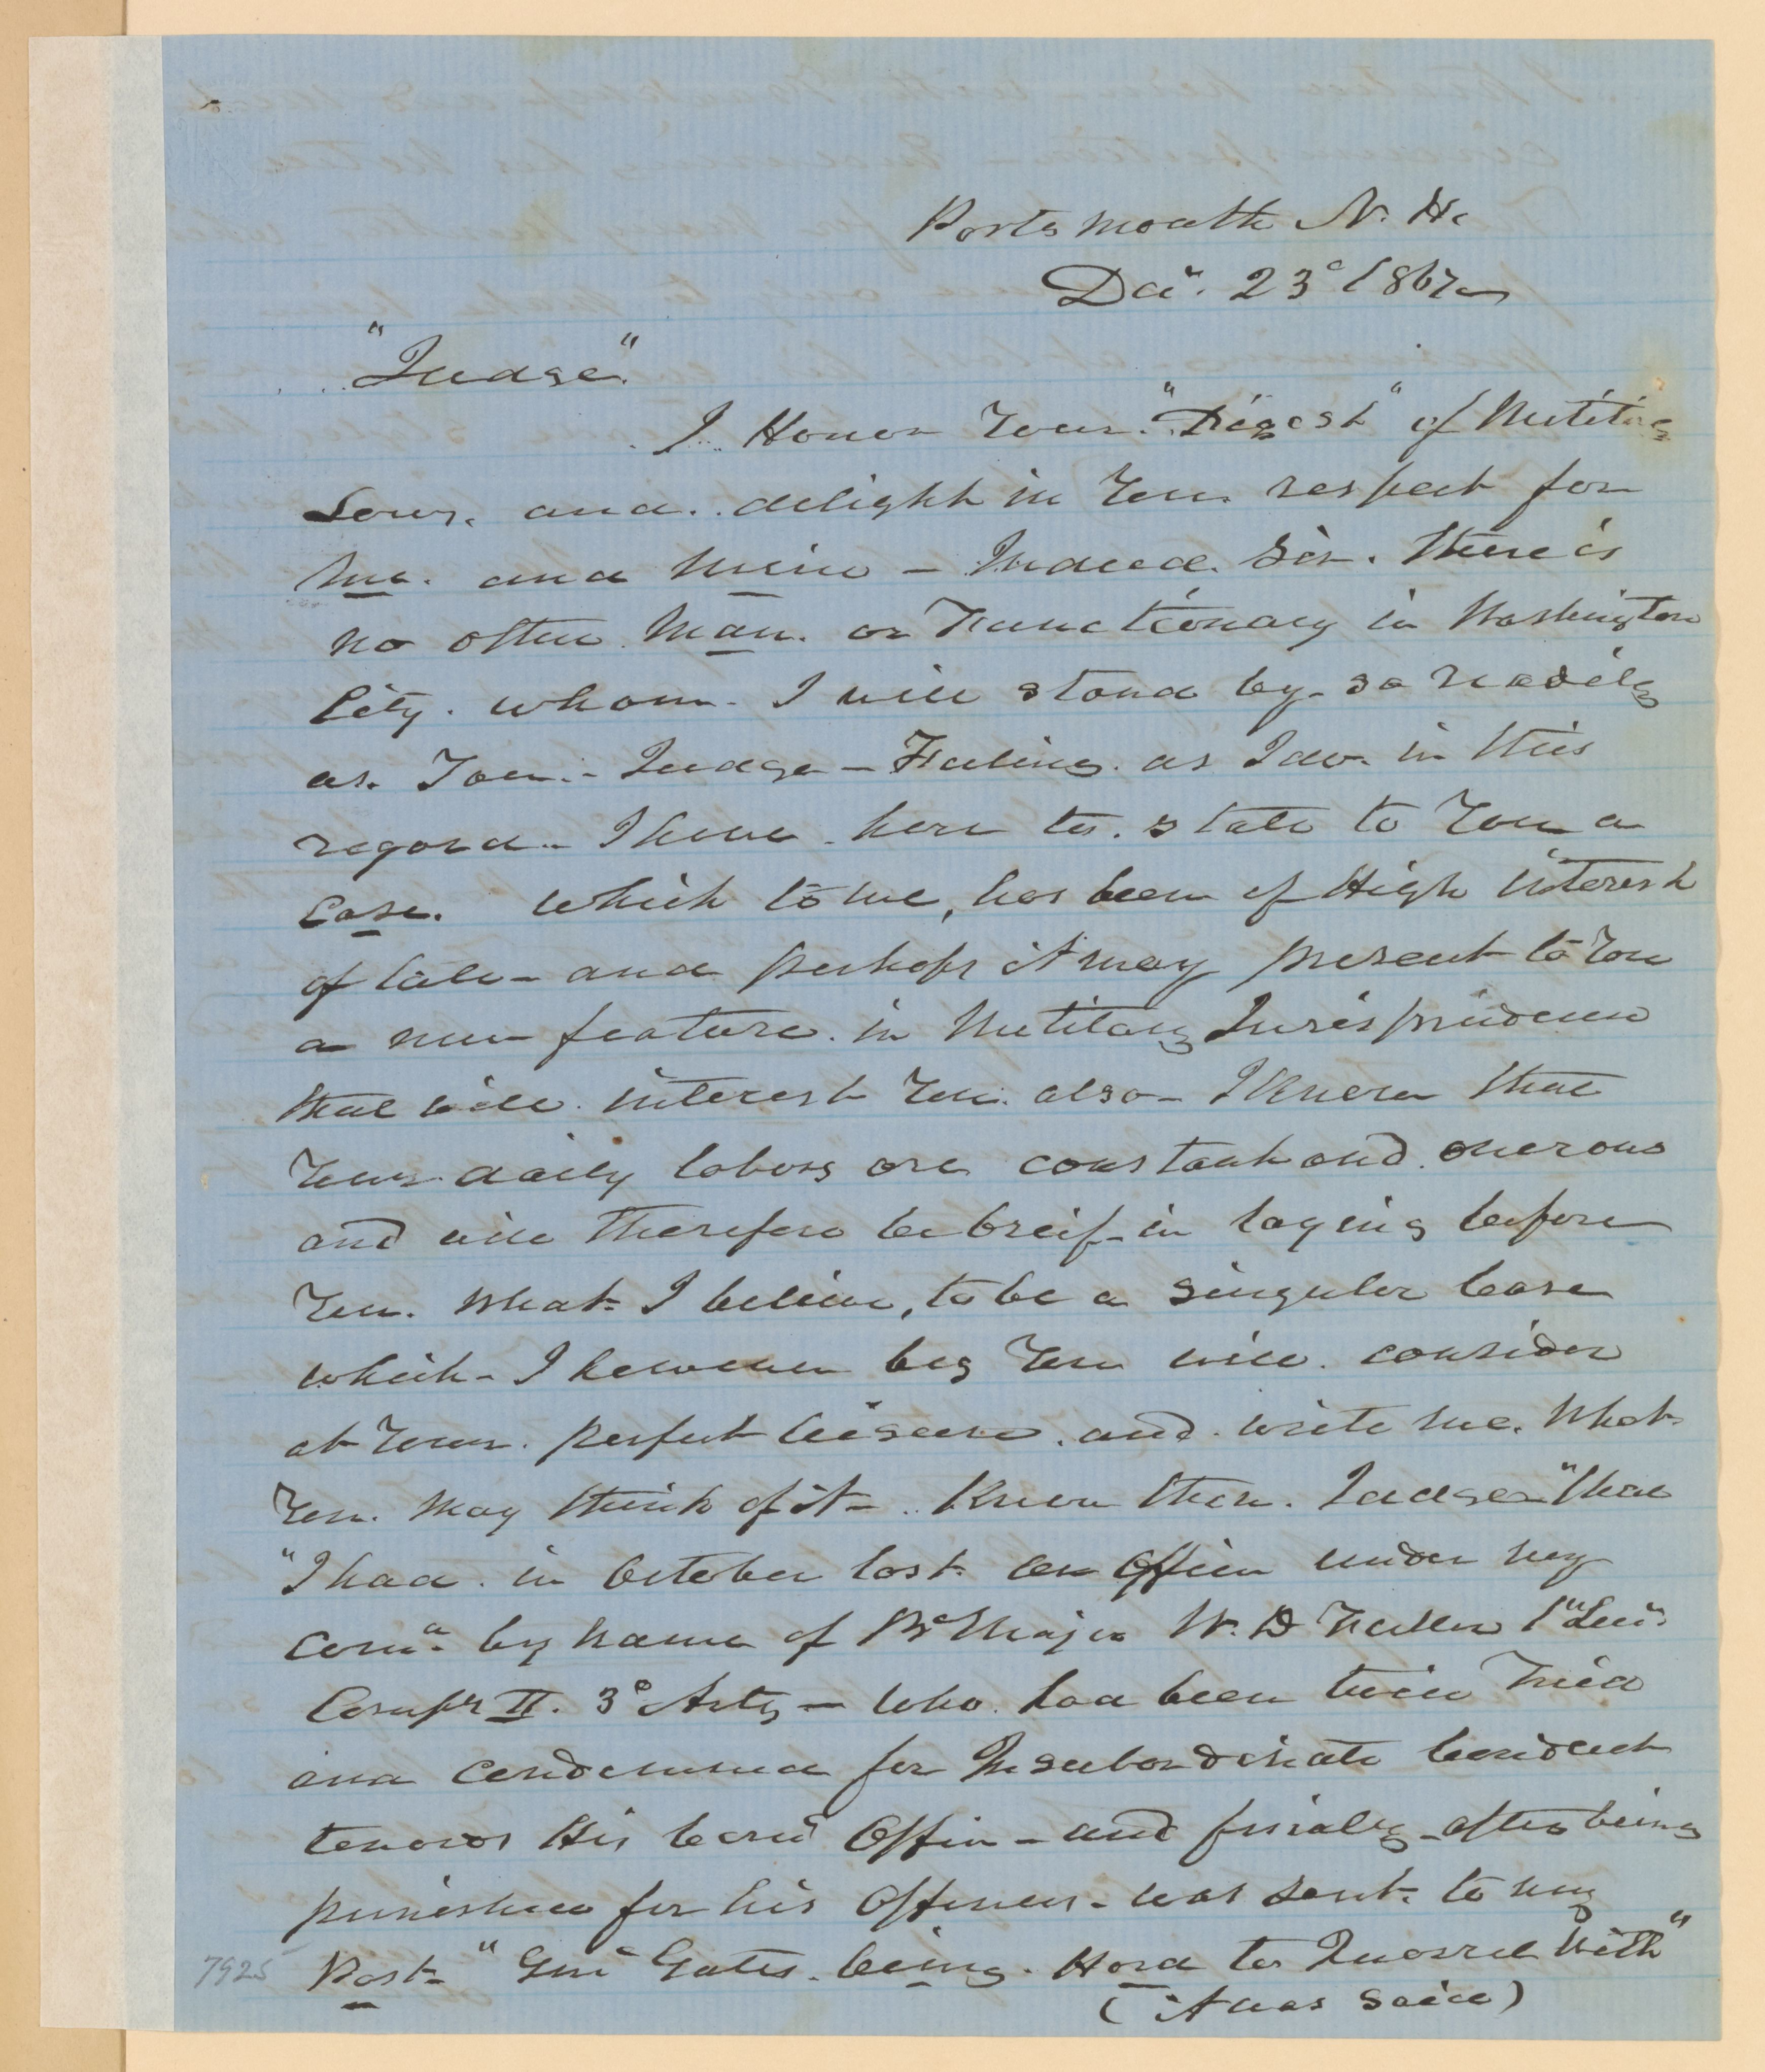 Portsmouth N. H.
Dec. 23d 1867
"Judge"
I Honor Your "Digest" of Military
Laws. and. delight in Your respect for
me. and mine – Indeed. Sir. there is
no other Man. or Functionary in Washington
City. whom. I will stand by. so readily
as. You. – Judge – Feeling. as I do. in this
regard – I have. here to. state to You a
Case. which to me, has been of High interest
of late – and perhaps it may present to You
a new feature. in Military Jurisprudence
that will. interest You. also – I know that
Your daily labors are constant and. onerous
and will therefore be breif – in laying before
You. what I believe, to be a singular Case
which – I however beg You will. consider
at Your. perfect leisure. and. write me. what
You. may think of it – Know then. Judge – "that
"I had. in October last. an Officer under my
Comd. by name of Bt Major W. D Fuller 1" Lieut
Compy II. 3d Arty – who. had been twice Tried
and condemned for Insubordinate Conduct
towards His Comd Officer – and finally – after being
punished for his Offences – was sent. to my
Post – "Genl Gates. being. Hard to Quarrel With"
(it was said)
7925